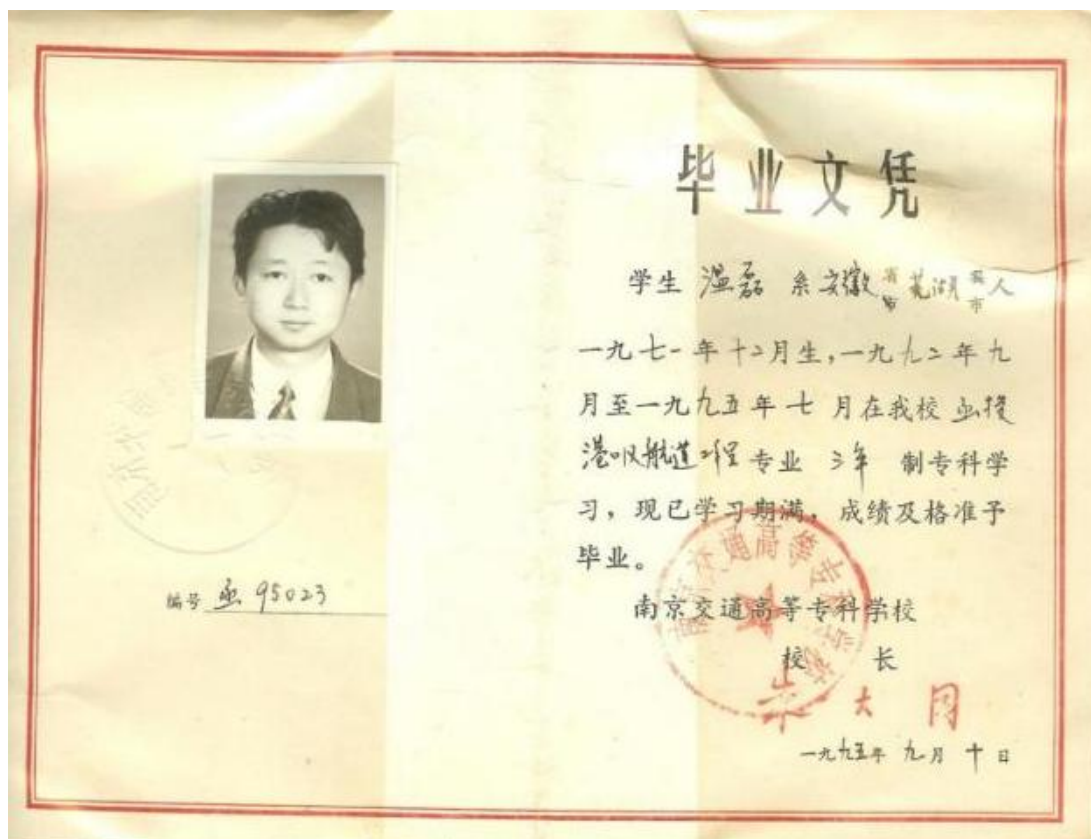 毕业文凭
学生 温磊 系安徽省市芜湖县市人
一九七一年十二月生,一九九二年九
月至一九九五年七月在我校函授
港口及航道工程专业 三年 制专科学
习,现已学习期满,成绩及格准予
毕业。
编号 函 95023
南京交通高等专科学校
校 长
一九九五年九月十日
南京交通高等专科学校